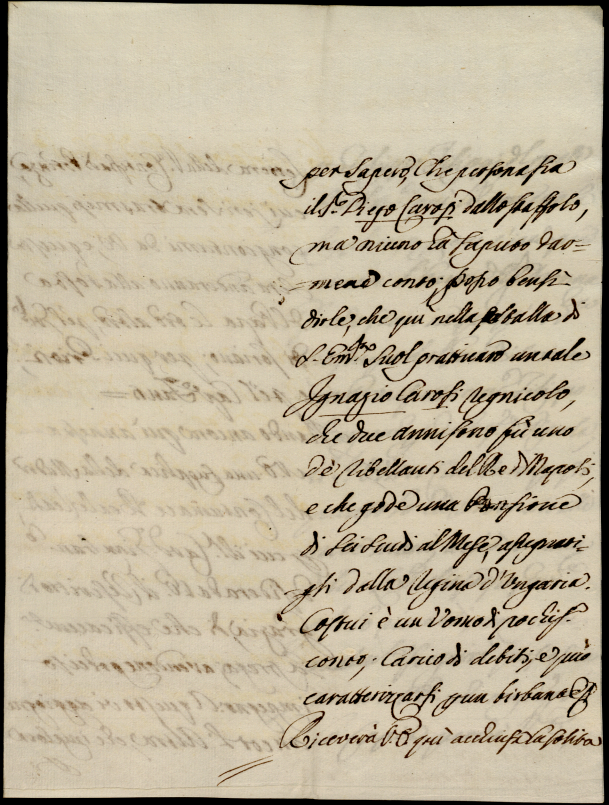 per sapere, che persona sia
il Sr. Diego Carosi dallo Staffolo,
ma niuno hà saputo dar=
=mene conto; posso bensì
dirle, che quì nella stalla di
S. Em.za suol pratticare un tale
Ignazio Carosi Regnicolo,
che due anni sono fù uno
de' Ribellanti del Rè di Napoli,
e che gode una Pensione
di sei scudi al Mese, assegnati=
=gli dalla Regina d'Ungaria.
Costui è un Uomo di pochiss.
conto, Carico di debiti, e può
caratterizzarsi p un birbante
Riceverà V.S. quì acclusa la solita